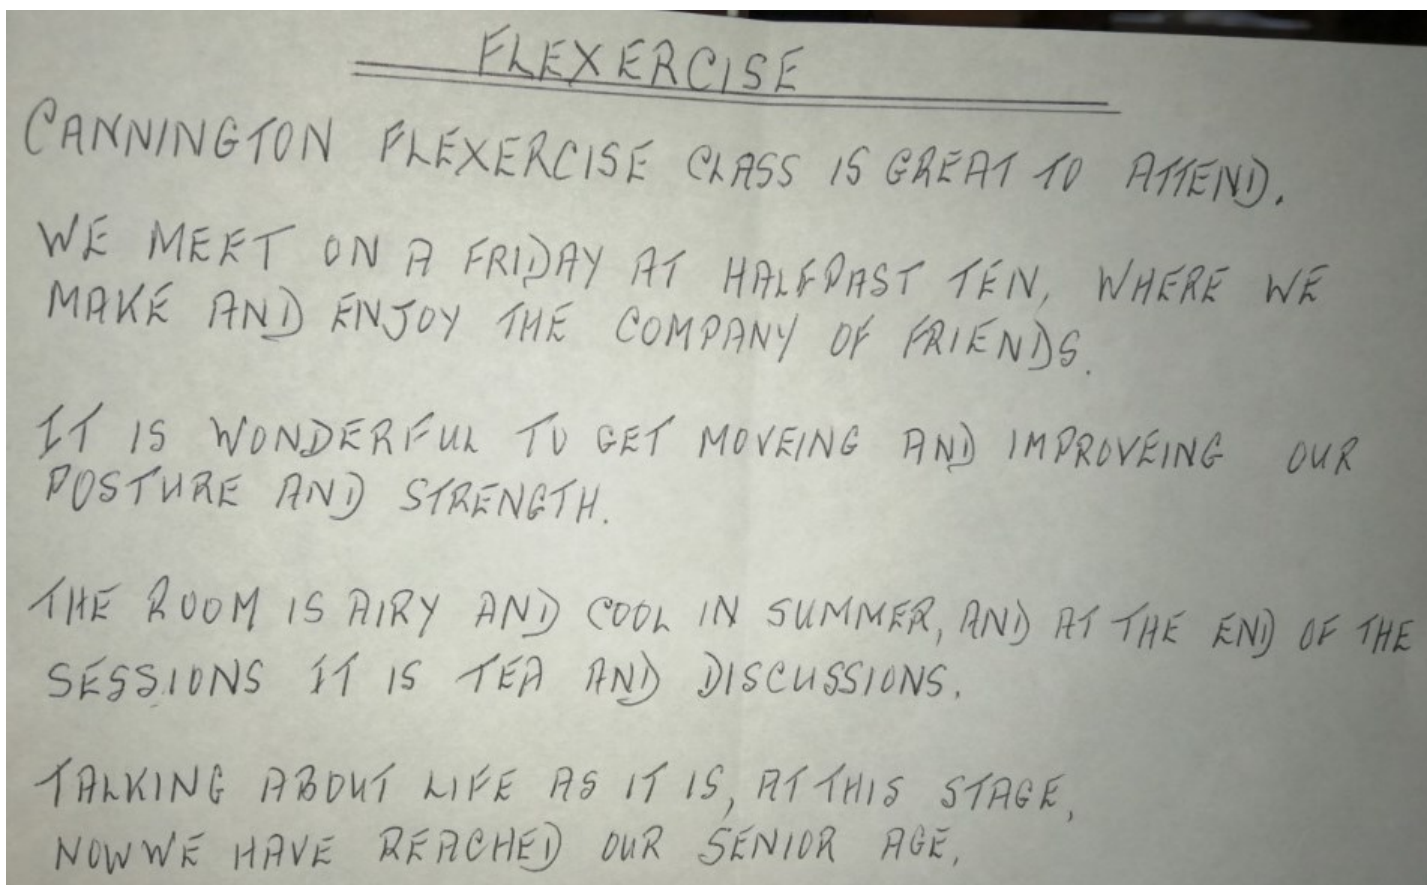 FLEXERCISE
CANNINGTON FLEXERCISE CLASS IS GREAT TO ATTEND.
WE MEET ON A FRIDAY AT HALFPAST TEN, WHERE WE
MAKE AND ENJOY THE COMPANY OF FRIENDS.
IT IS WONDERFUL TO GET MOVEING AND IMPROVEING OUR
POSTURE AND STRENGTH.
THE ROOM IS AIRY AND COOL IN SUMMER, AND AT THE END OF THE
SESSIONS IT IS TEA AND DISCUSSIONS.
TALKING ABOUT LIFE AS IT IS, AT THIS STAGE,
NOW WE HAVE REACHED OUR SENIOR AGE,